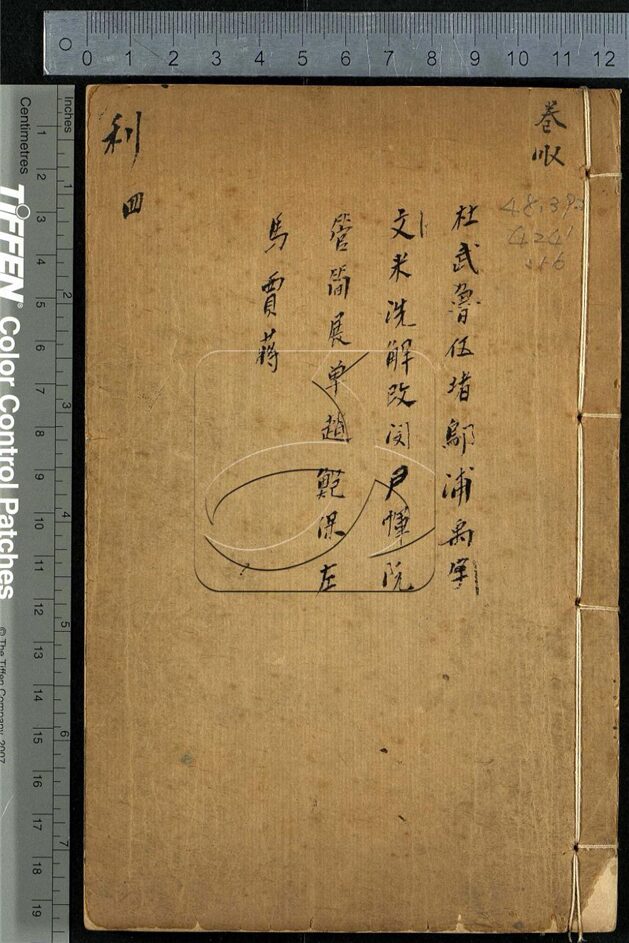 0 1 2 3 4 5 6 7 8 9 10 11 12
卷
48,392
4241
116
杜武魯伍堵鄔浦禹
文米洗解改閔尹惲阮
管簡展单趙鮑保左
馬賈蔣
利
四
Inches
1 2 3 4 5 6 7
Centimetres
1 2 3 4 5 6 7 8 9 10 11 12 13 14 15 16 17 18 19
TIFFEN® Color Control Patches
© The Tiffen Company, 2007